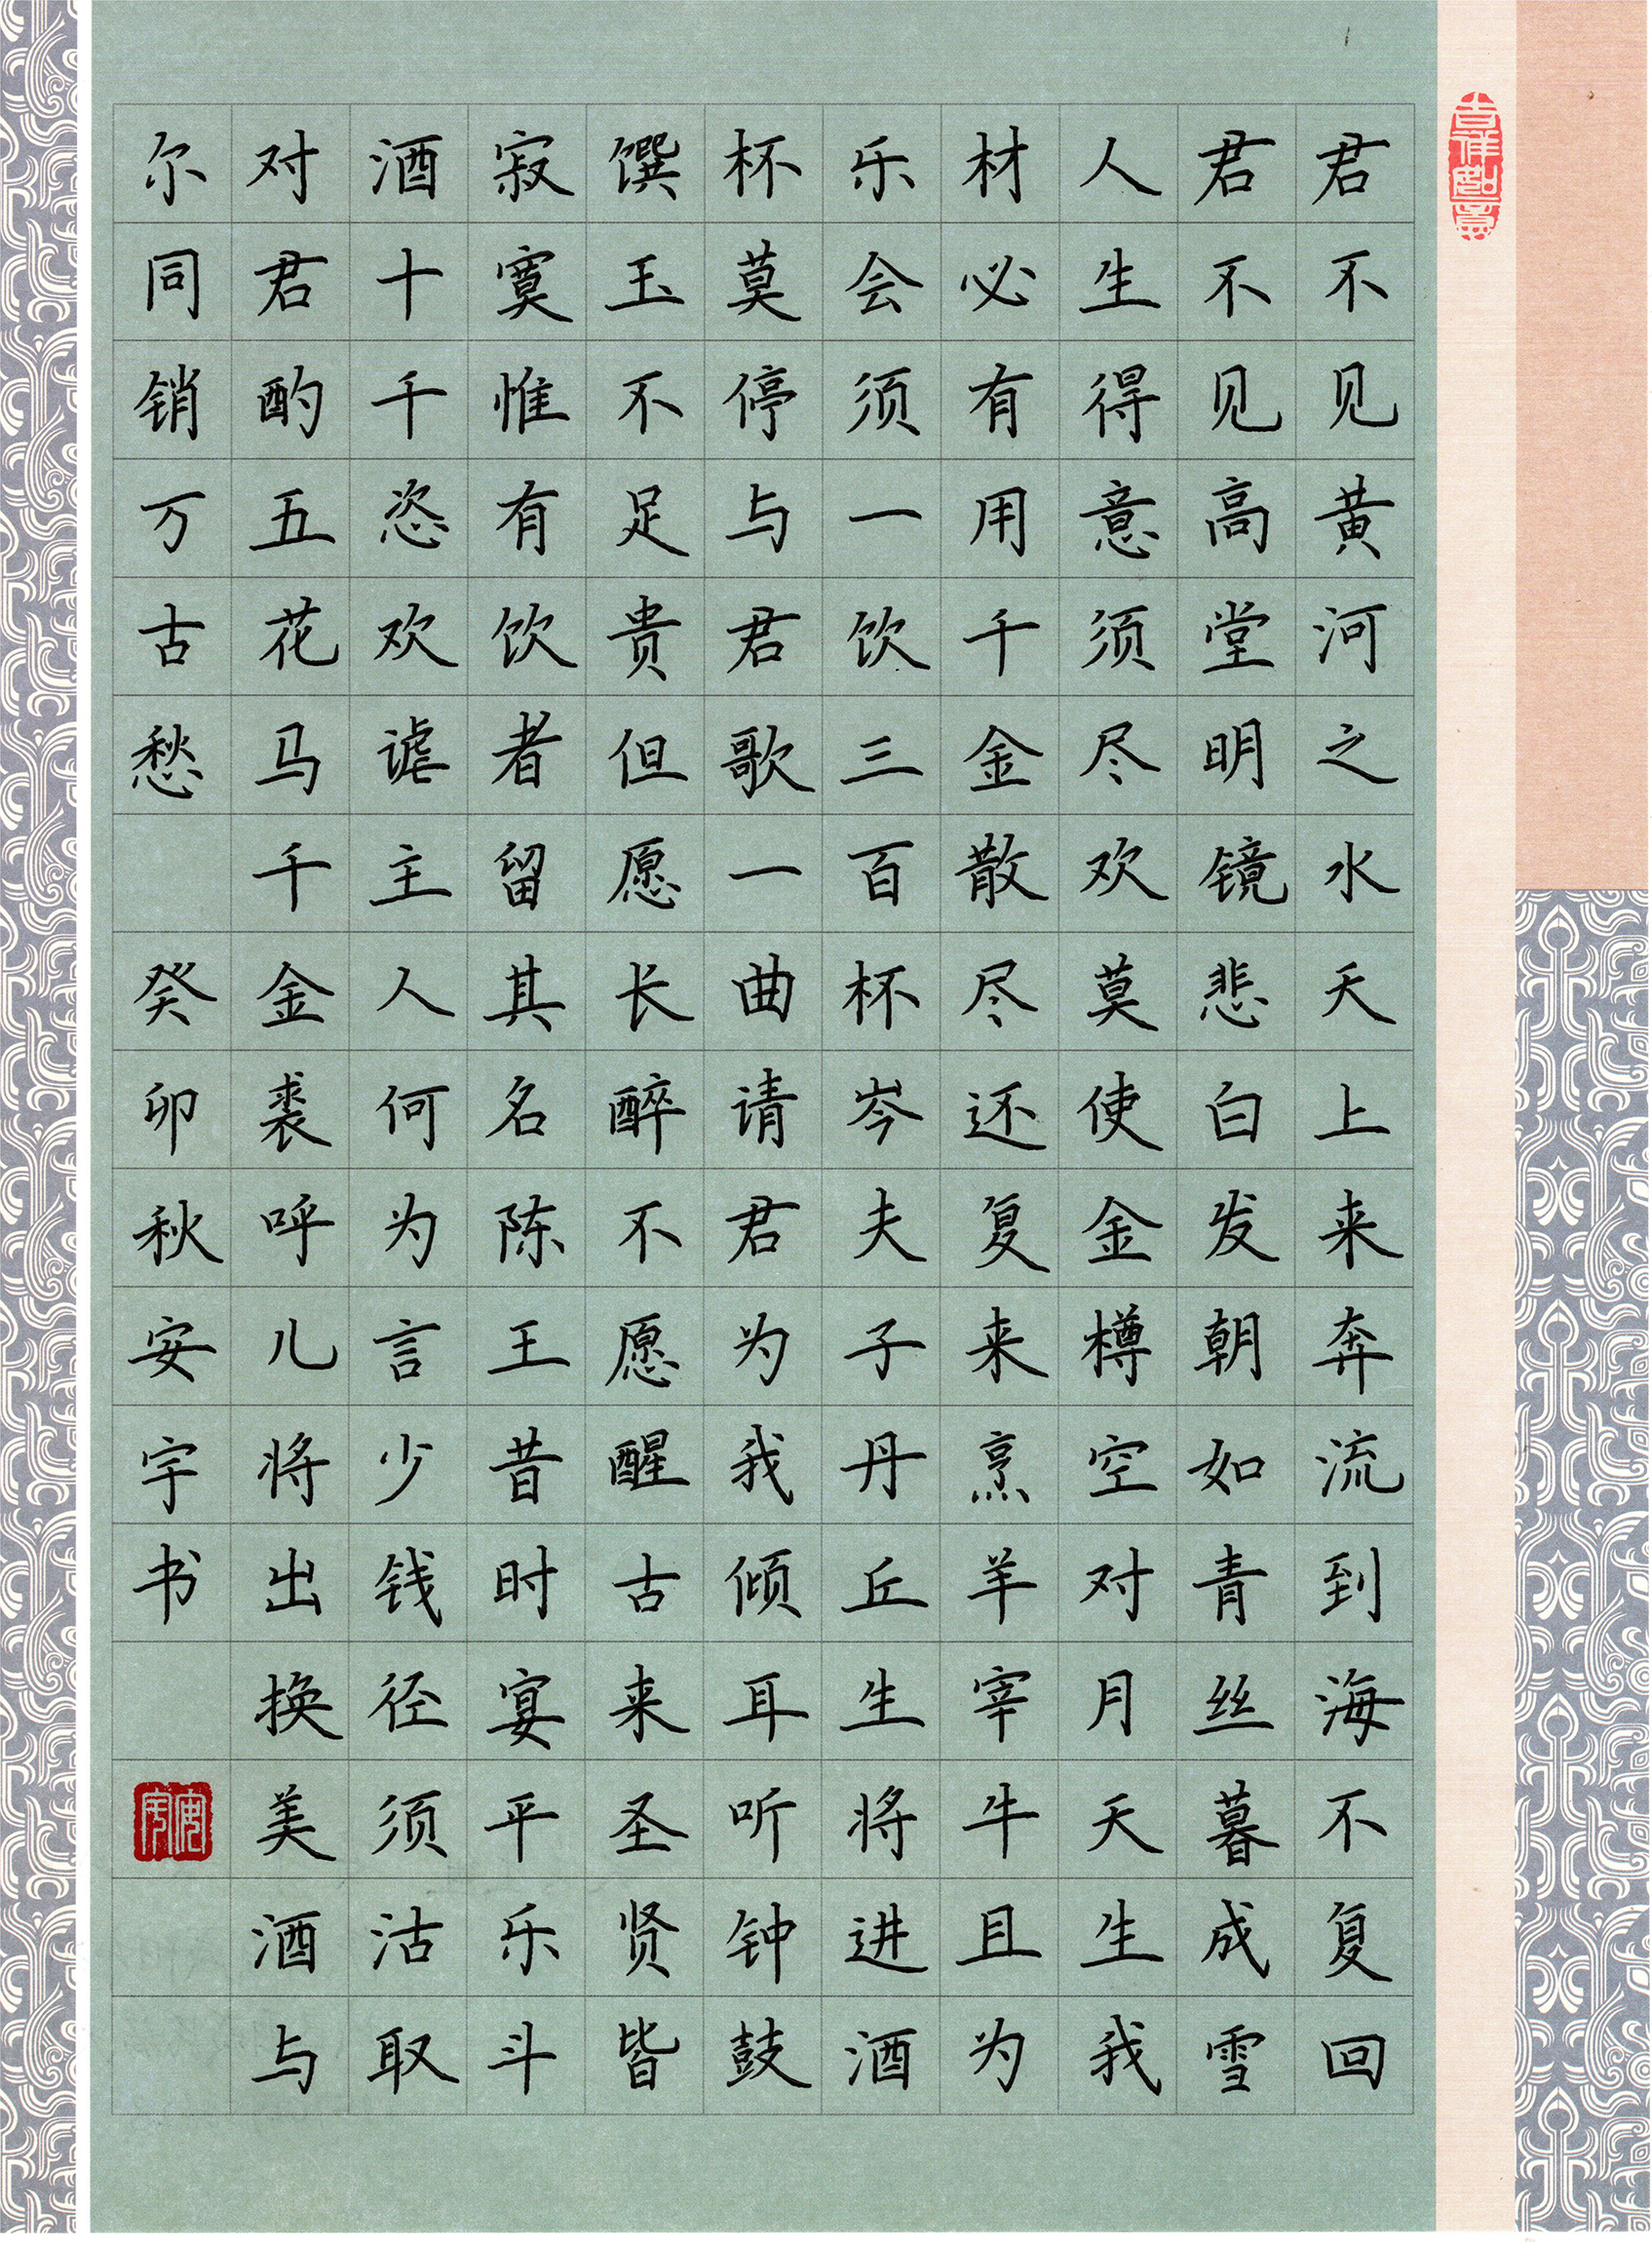 吉祥如意
君不见黄河之水天上来奔流到海不复回
君不见高堂明镜悲白发朝如青丝暮成雪
人生得意须尽欢莫使金樽空对月天生我
材必有用千金散尽还复来烹羊宰牛且为
乐会须一饮三百杯岑夫子丹丘生将进酒
杯莫停与君歌一曲请君为我倾耳听钟鼓
馔玉不足贵但愿长醉不愿醒古来圣贤皆
寂寞惟有饮者留其名陈王昔时宴平乐斗
酒十千恣欢谑主人何为言少钱径须沽取
对君酌五花马千金裘呼儿将出换美酒与
尔同销万古愁 癸卯秋安宇书
安宇